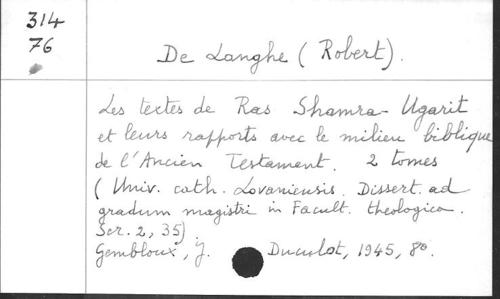 314
76
De Langhe (Robert).
Les textes de Ras Shamra-Ugarit
et leurs rapports avec le milieu biblique
de l'Ancien Testament. 2 tomes
(Univ. cath. Lovaniensis. Dissert. ad
gradum magistri in Facult. theologica.
Ser. 2, 35)
Gembloux, J. Duculot, 1945, 8º.